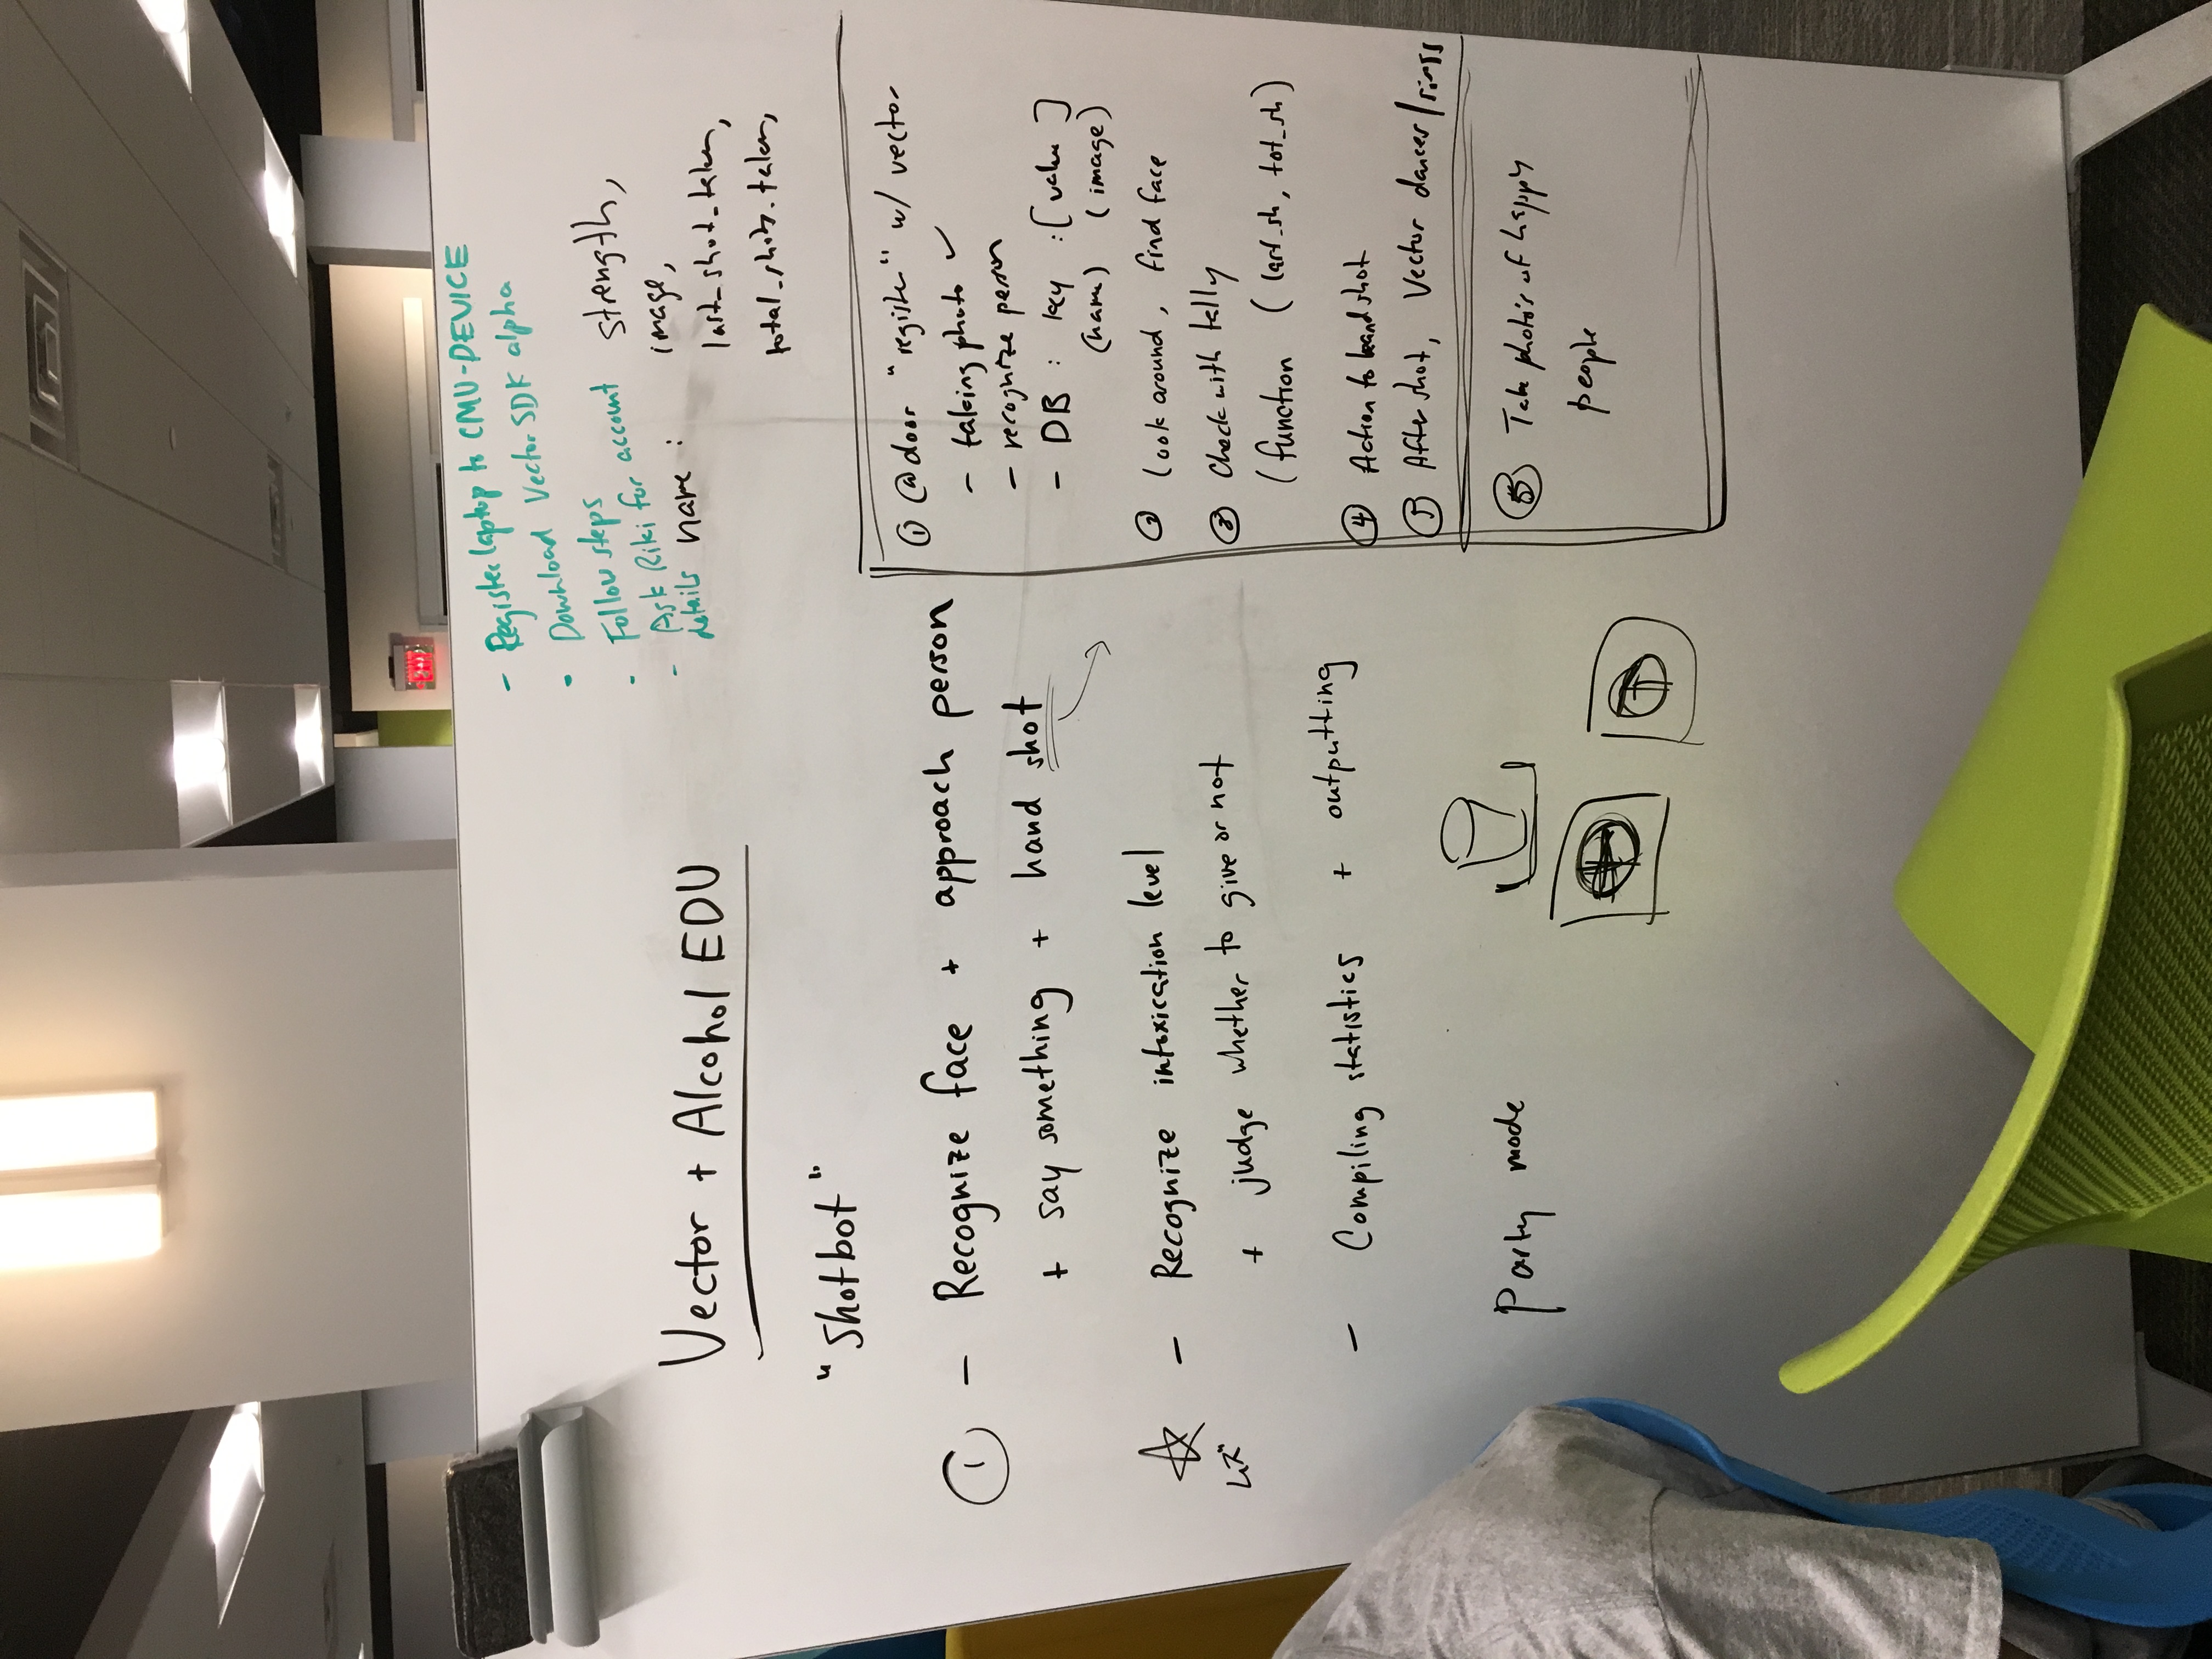 - Register laptop to CMU-DEVICE
• Download Vector SDK alpha
• Follow steps
- Ask Riki for account details
name : strength,
image,
last_shot_taken,
total_shots_taken,
Vector + Alcohol EDU
"Shotbot"
① - Recognize face + approach person
+ say something + hand shot
- Recognize intoxication level
+ judge whether to give or not
- Compiling statistics + outputting
Party mode
① @door "register" w/ vector
- taking photo ✓
- recognize person
- DB : key : [value]
(name) (image)
② Look around, find face
③ Check with tally
(function (last_sh, tot_sh)
④ Action to hand shot
⑤ After shot, Vector dances/
⑥ Take photos of happy
people